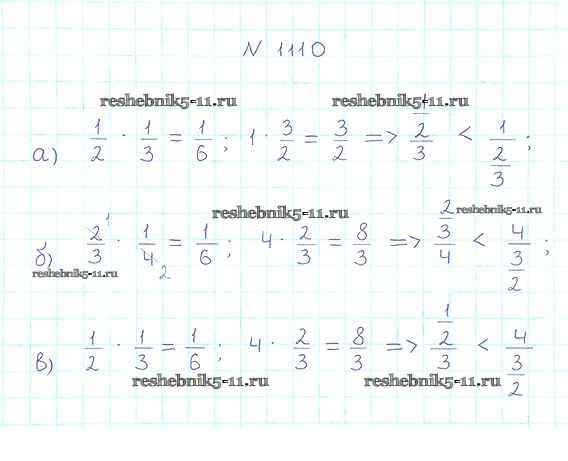 N 1110
reshebnik5-11.ru reshebnik5-11.ru
а) 1/2 · 1/3 = 1/6 ; 1 · 3/2 = 3/2 => 1/2/3 < 1/2/3 ;
reshebnik5-11.ru reshebnik5-11.ru
б) 2/3 · 1/4 = 1/6 ; 4 · 2/3 = 8/3 => 2/3/4 < 4/3/2 ;
reshebnik5-11.ru
в) 1/2 · 1/3 = 1/6 ; 4 · 2/3 = 8/3 => 1/2/3 < 4/3/2
reshebnik5-11.ru reshebnik5-11.ru